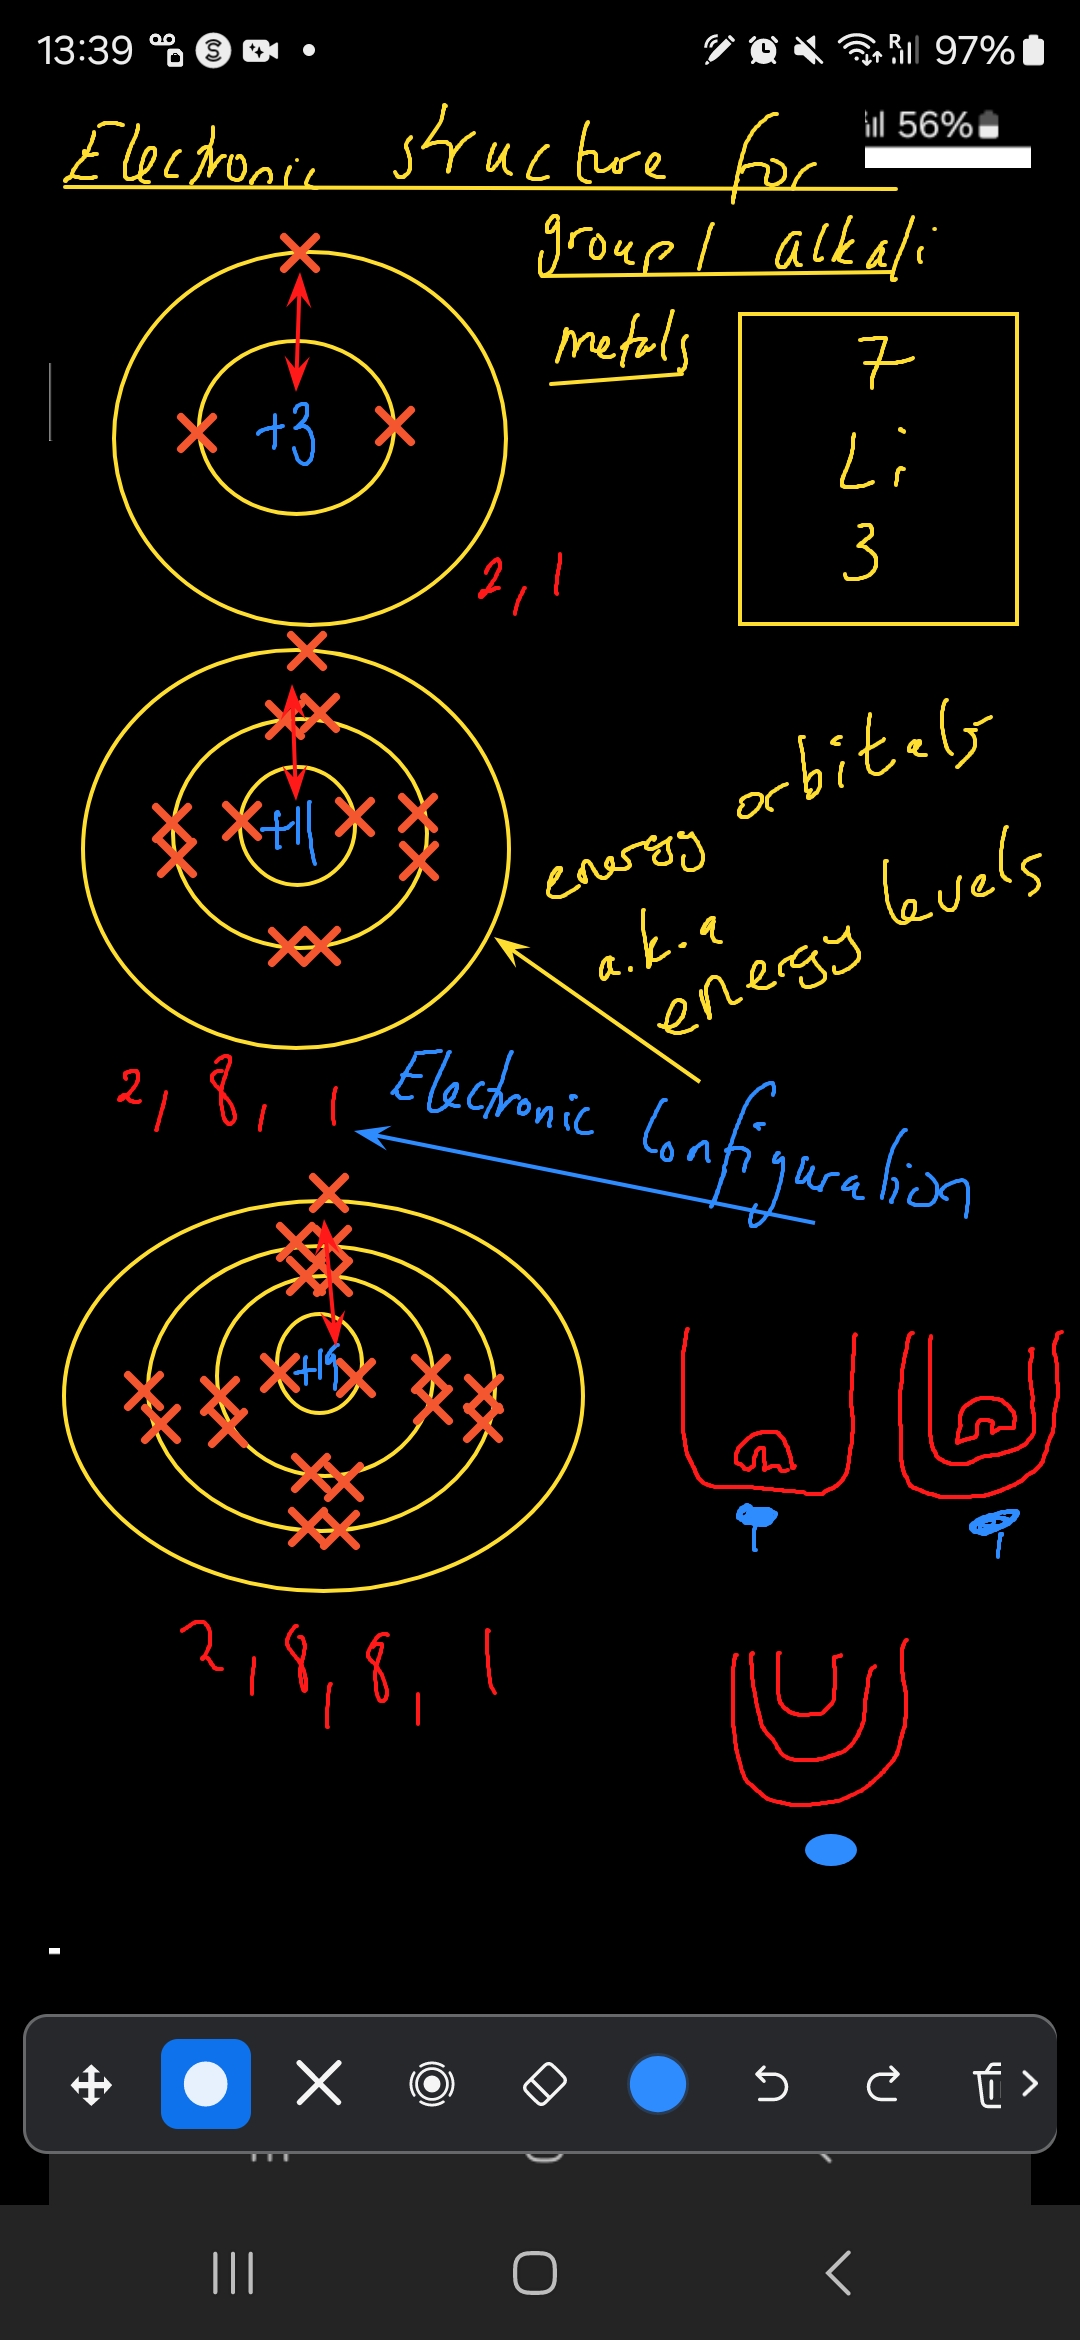 13:39
97%
56%
Electronic structure for
group 1 alkali
metals
7
Li
3
+3
2, 1
+11
energy orbitals
a.k.a
energy levels
2, 8, 1
Electronic Configuration
+19
2, 8, 8, 1